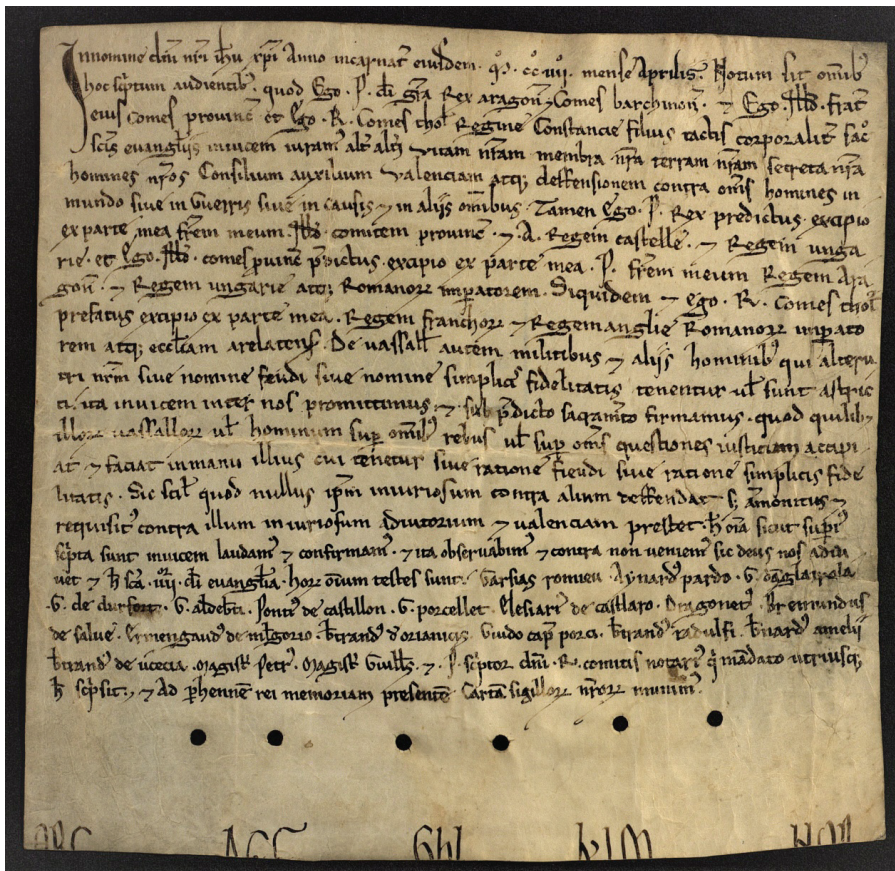 In nomine dñi nri ihu xpi Anno incarnat eiusdem · Mº · ccº · iiij · mense Aprilis · Notum sit omib;
hoc scptum audientib; quod Ego · P · di gra Rex aragon ⁊ Comes barchinon · ⁊ Ego · Ildo · frat
eius comes provinc et Ego · R · Comes thol Regine Constancie filius tactis corporalit sac
scis evangliis invicem iuram alt alti vitam nram membra nra terram nram secreta nra
homines nros Consilium auxilium valenciam atq; deffensionem contra omis homines in
mundo sive in Guerris sive in causis ⁊ in aliis omnibus · Tamen Ego · P · Rex predictus excipio
ex parte mea frem meum · Ildo · comitem provinc · ⁊ · A · Regem castelle · ⁊ Regem unga
rie · et Ego · Ildo · comes pvinc pdictus excipio ex parte mea · P · frem meum Regem Ara
gon · ⁊ Regem ungarie atq; Romanor impatorem · Siquidem ⁊ ego · R · Comes thol
prefatus excipio ex parte mea · Regem franchor ⁊ Regem anglie Romanor impato
rem atq; ecclam arelatens · De vassall autem militibus ⁊ aliis hominib; qui alteru
tri nrm sive nomine feudi sive nomine simplicis fidelitatis tenentur ul sunt astric
ti · ita invicem inter nos promittimus · ⁊ sub pdicto sacramto firmamus · quod quilib;
illor vassallor ul hominum sup omib; rebus ul sup omis questiones iusticiam accipi
at ⁊ faciat in manu illius cui tenetur sive ratione feudi sive ratione simplicis fide
litatis · Sic scil quod nullus ipm iniuriosum contra alium deffendat s; amonitus ⁊
requisit contra illum iniuriosum adiutorium ⁊ valenciam prestet · h oia sicut supi
scpta sunt invicem laudam ⁊ confirmam · ⁊ ita observabim ⁊ contra non veniem sic deus nos adiu
vet ⁊ h sca · iiijor · di evanglia · hor omium testes sunt · Garsias romieu · Aynard pardo · G · danglairola
G · de durfort · G · aldebti · Ponti de castillon · G · porcellet · Elesiari de castlaro · Dragonet · Bremundus
de salve · Ermengaud de mlgorio · btrand dorianicis · Guido cap porci · btrand radulfi · bnard amelii
btrand de ucecia · magist Petr · Magist Guillms · ⁊ · P · sciptor dni · R · comitis notari q mandato utriusq;
h scpsit · ⁊ Ad phennem rei memoriam presentem Cartam sigillor nror munim
ABC
GHI
KLM